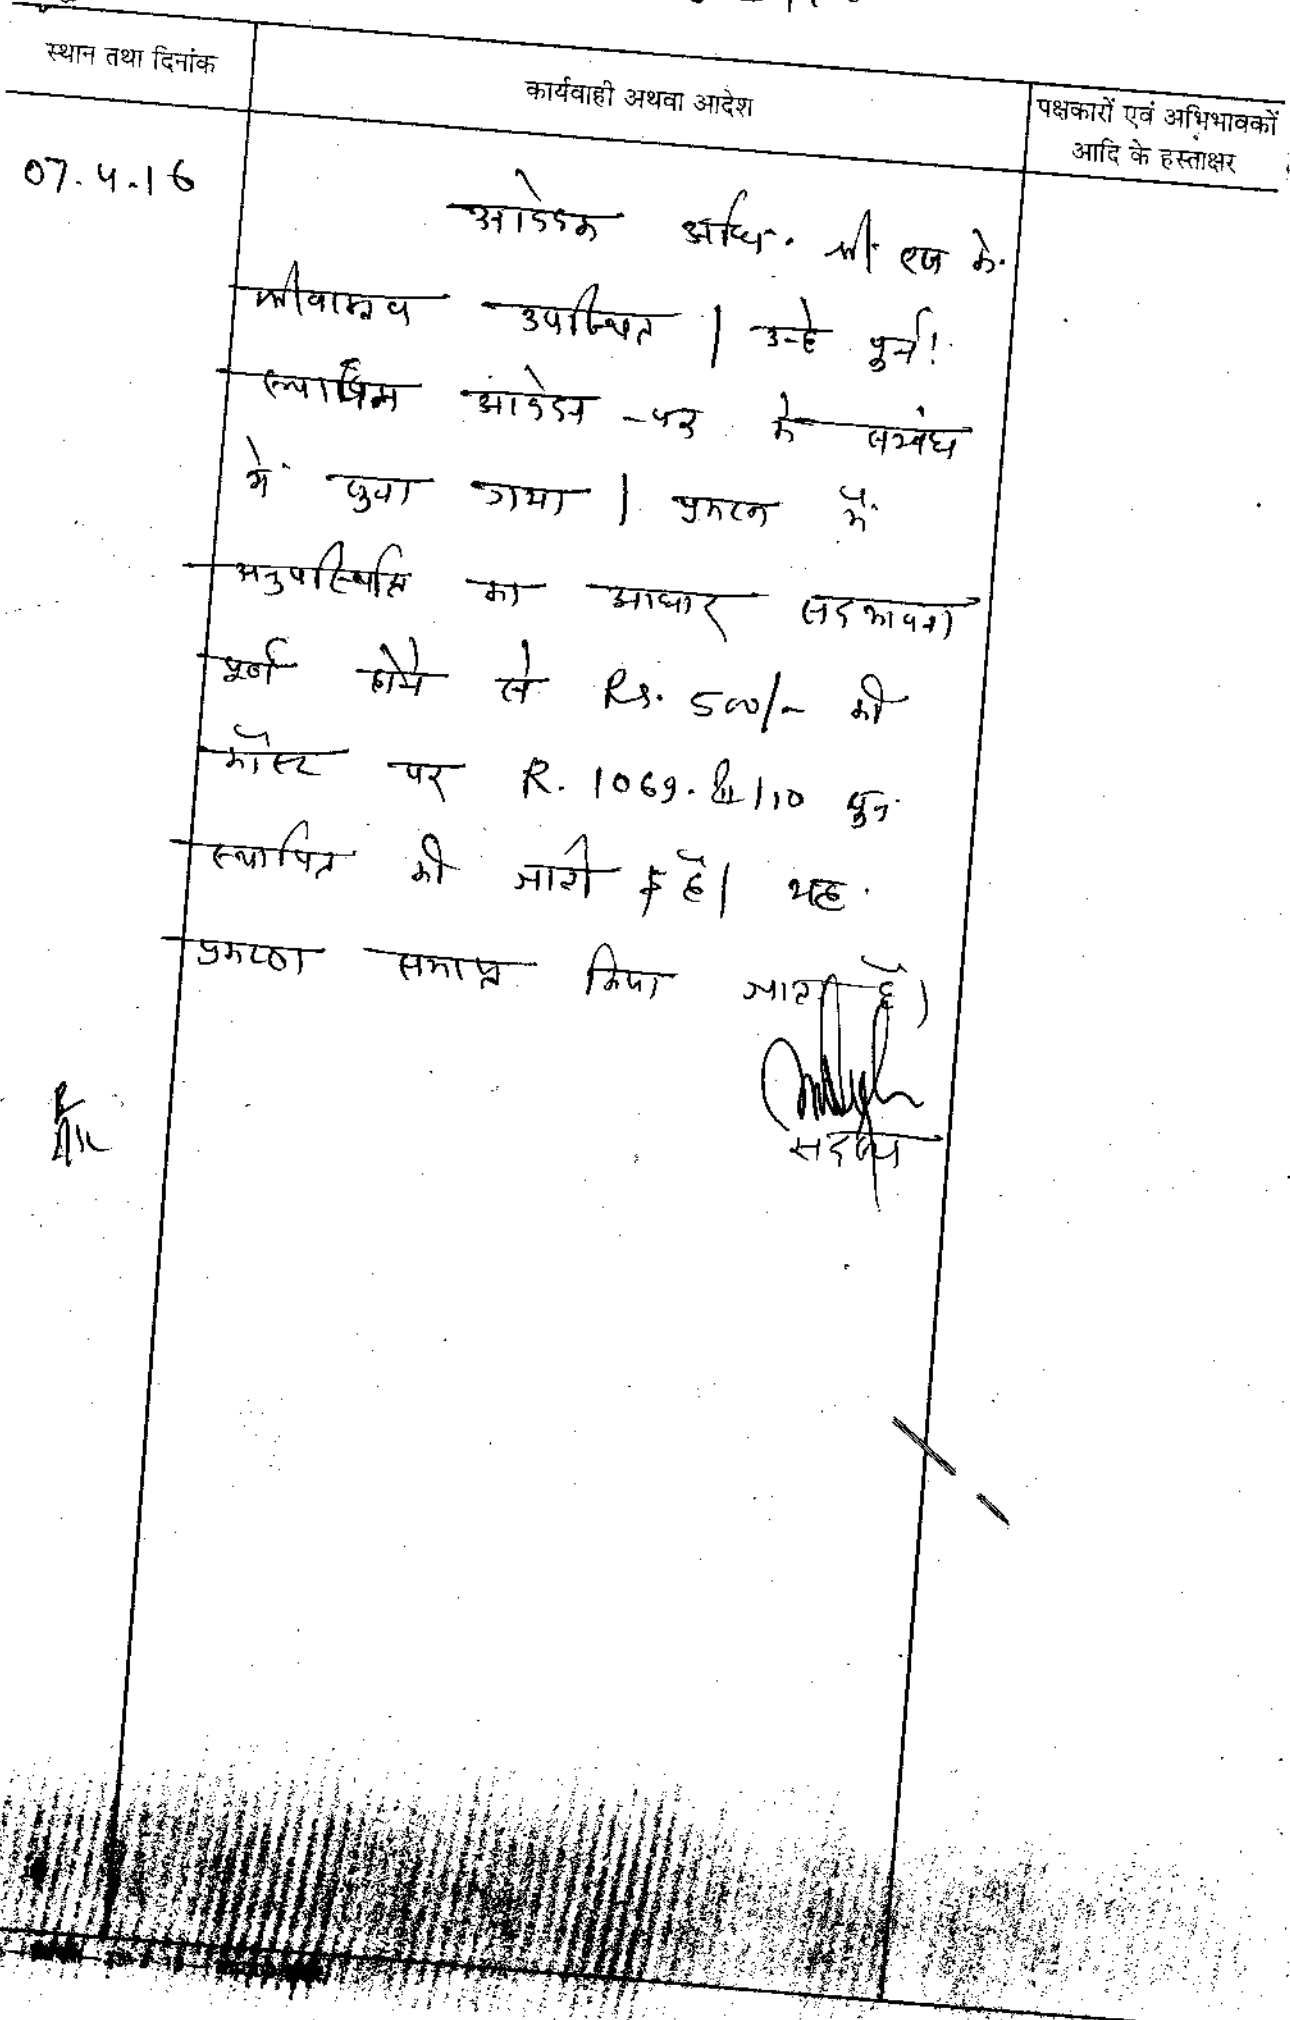 स्थान तथा दिनांक
कार्यवाही अथवा आदेश
पक्षकारों एवं अभिभावकों
आदि के हस्ताक्षर
07.4.16
आवेदक अधि. श्री एस के.
श्रीवास्तव उपस्थित | उन्हे पुर्न:
स्थापन आवेदन - पत्र के संबंध
में सुना गया | प्रकरण में
अनुपस्थिति का आधार सदभावना
पूर्ण होने से Rs. 500/- की
कॉस्ट पर R. 1069. III/10 पुनः
स्थापित की जाती है | यह
प्रकरण समाप्त किया जाता है |
सदस्य